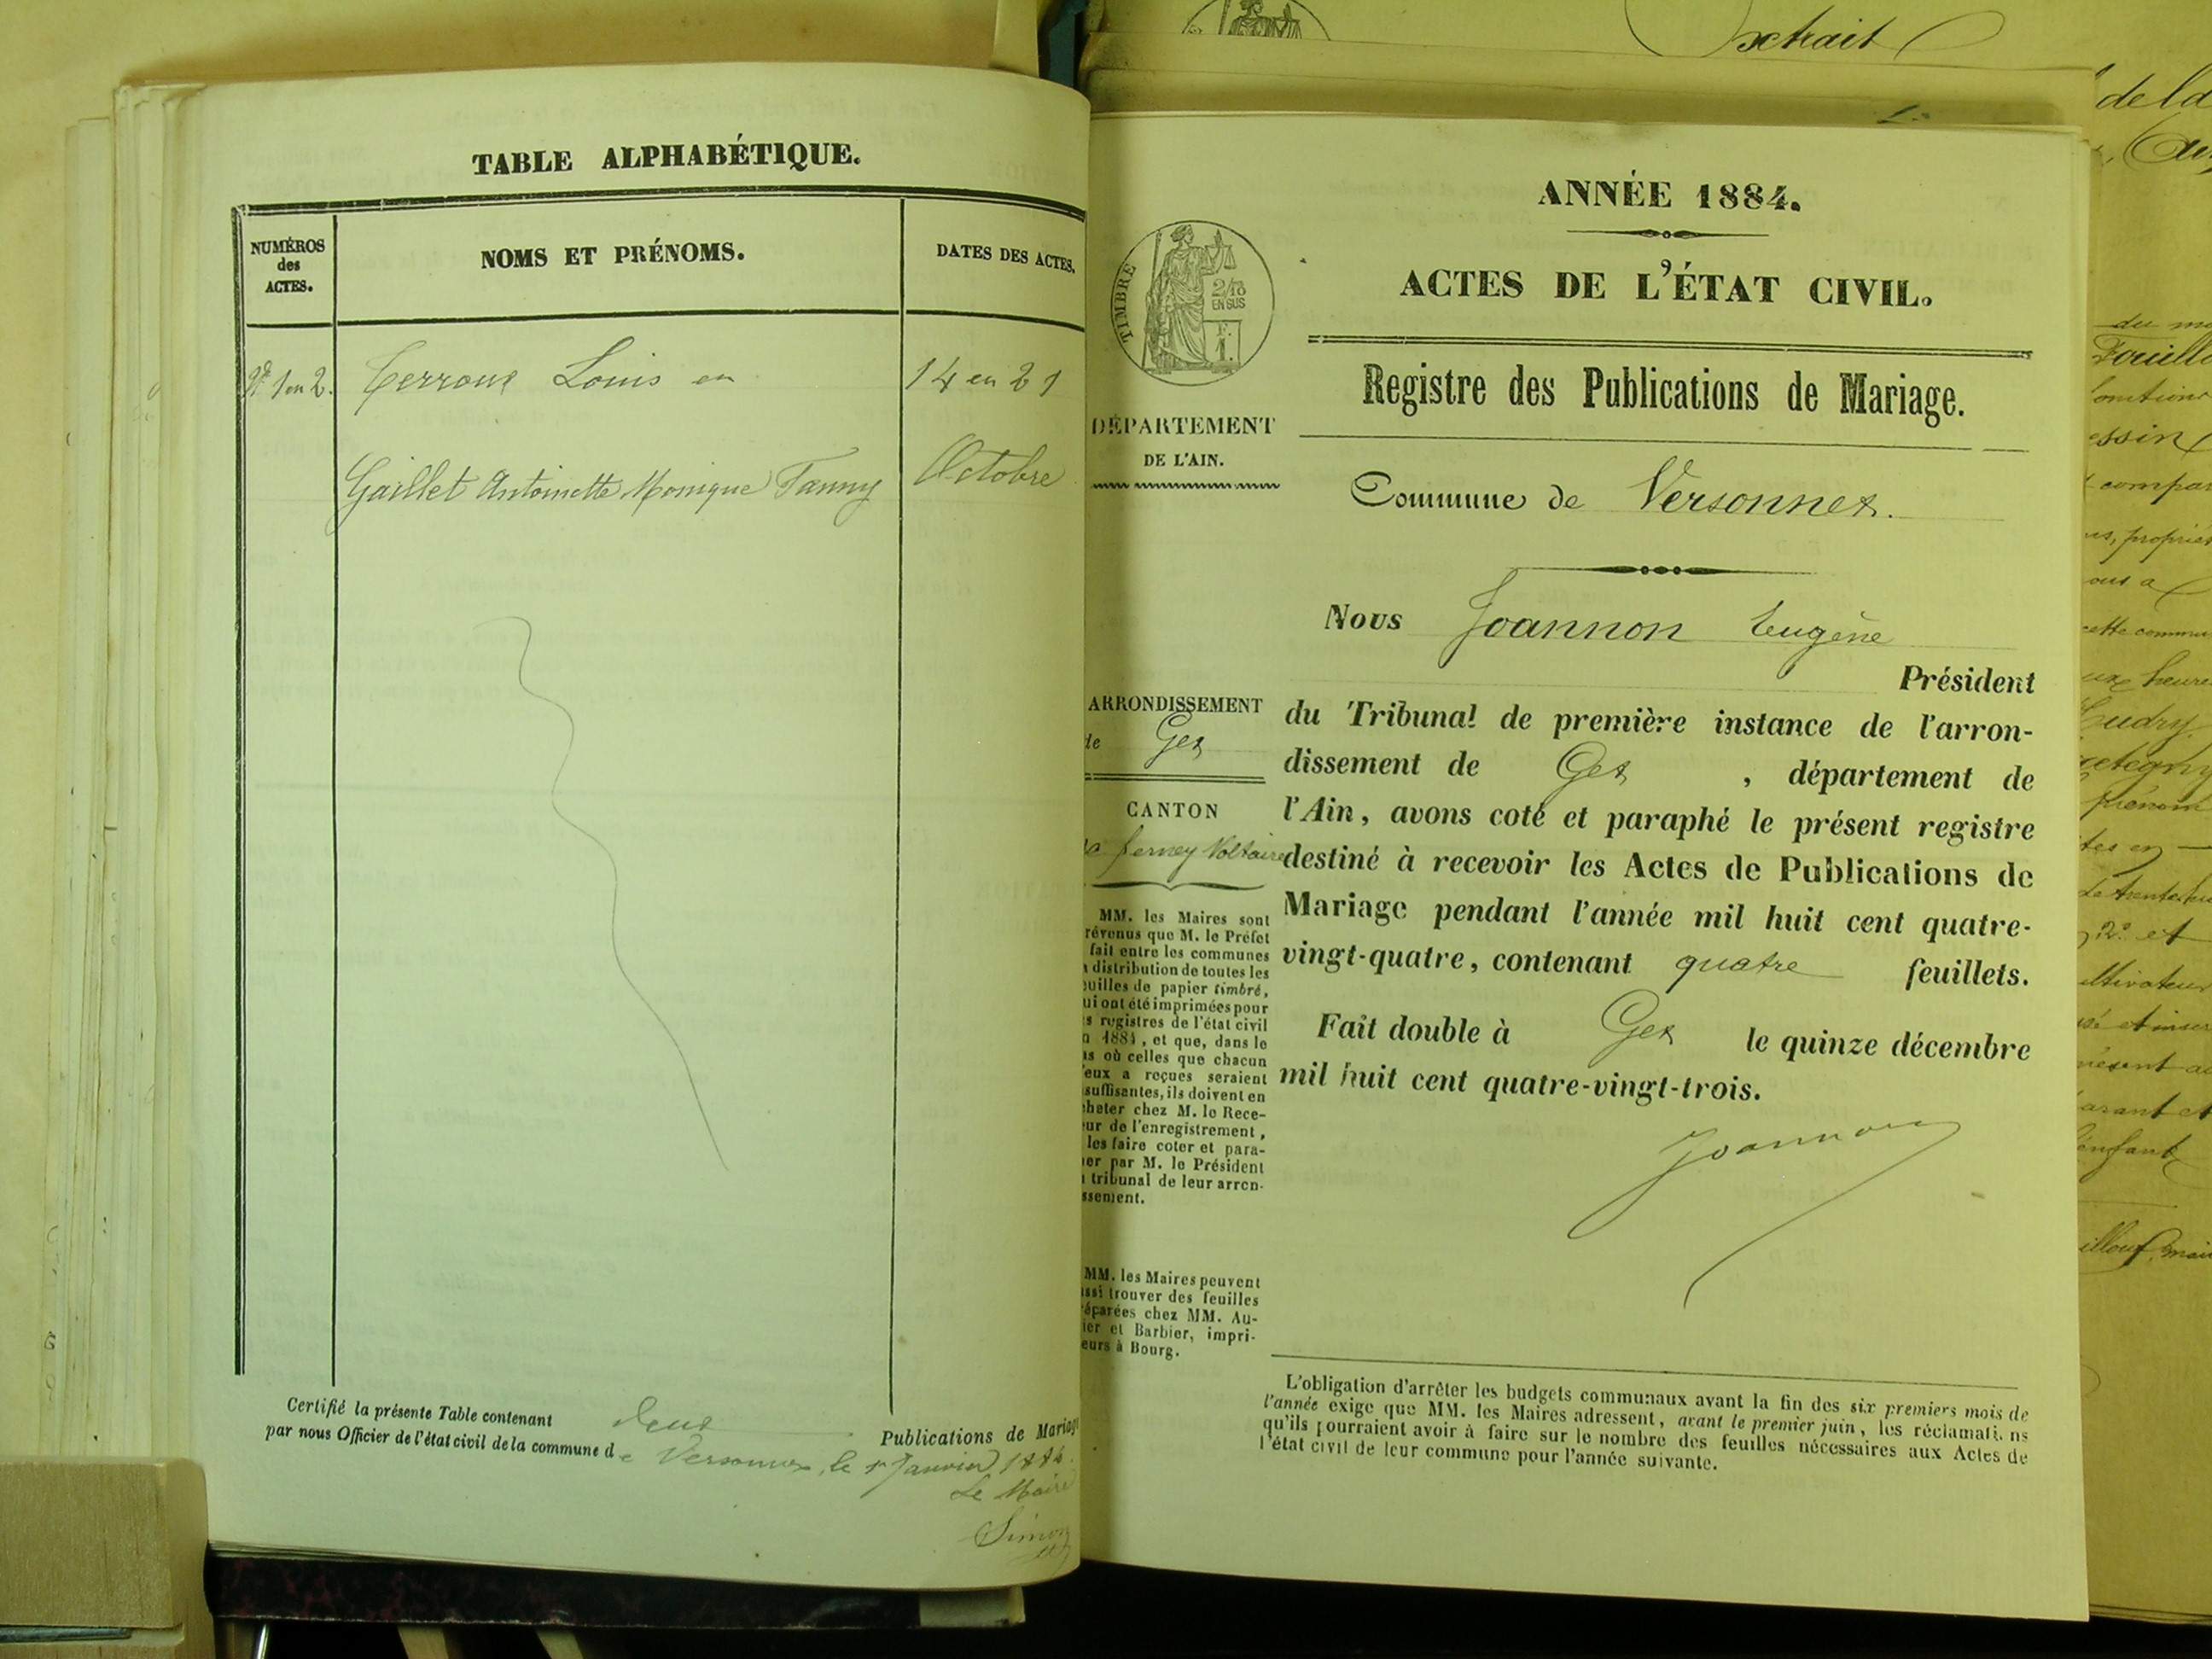 TABLE ALPHABÉTIQUE.
NUMÉROS
des
ACTES.
NOMS ET PRÉNOMS.
DATES DES ACTES.
Nº 1 en 2.
Terroux Louis en
14 en 21
Gaillet Antoinette Monique Fanny
Octobre
Certifié la présente Table contenant deux Publications de Mariage
par nous Officier de l'état civil de la commune de Versonnex, le 1er Janvier 1884.
Le Maire
Simon
ANNÉE 1884.
ACTES DE L'ÉTAT CIVIL.
TIMBRE
2/10
EN SUS
F.
1.
Registre des Publications de Mariage.
DÉPARTEMENT
DE L'AIN.
Commune de Versonnex.
Nous Joannon Eugène
Président
ARRONDISSEMENT
de Gex
du Tribunal de première instance de l'arron-
dissement de Gex, département de
CANTON
Ferney Voltaire
l'Ain, avons coté et paraphé le présent registre
destiné à recevoir les Actes de Publications de
Mariage pendant l'année mil huit cent quatre-
vingt-quatre, contenant quatre feuillets.
Fait double à Gex le quinze décembre
mil huit cent quatre-vingt-trois.
Joannon
MM. les Maires sont
révenus que M. le Préfet
fait entre les communes
distribution de toutes les
uilles de papier timbré,
ui ont été imprimées pour
s registres de l'état civil
1884, et que, dans le
as où celles que chacun
'eux a reçues seraient
suffisantes, ils doivent en
heter chez M. le Rece-
ur de l'enregistrement,
les faire coter et para-
er par M. le Président
tribunal de leur arron-
ssement.
MM. les Maires peuvent
ssi trouver des feuilles
éparées chez MM. Au-
ier et Barbier, impri-
eurs à Bourg.
L'obligation d'arrêter les budgets communaux avant la fin des six premiers mois de
l'année exige que MM. les Maires adressent, avant le premier juin, les réclamations
qu'ils pourraient avoir à faire sur le nombre des feuilles nécessaires aux Actes de
l'état civil de leur commune pour l'année suivante.
Extrait
de la
comparu
ous a
cette commu
eux heures
2º et
ultivateur
présent ac
arant et
enfant